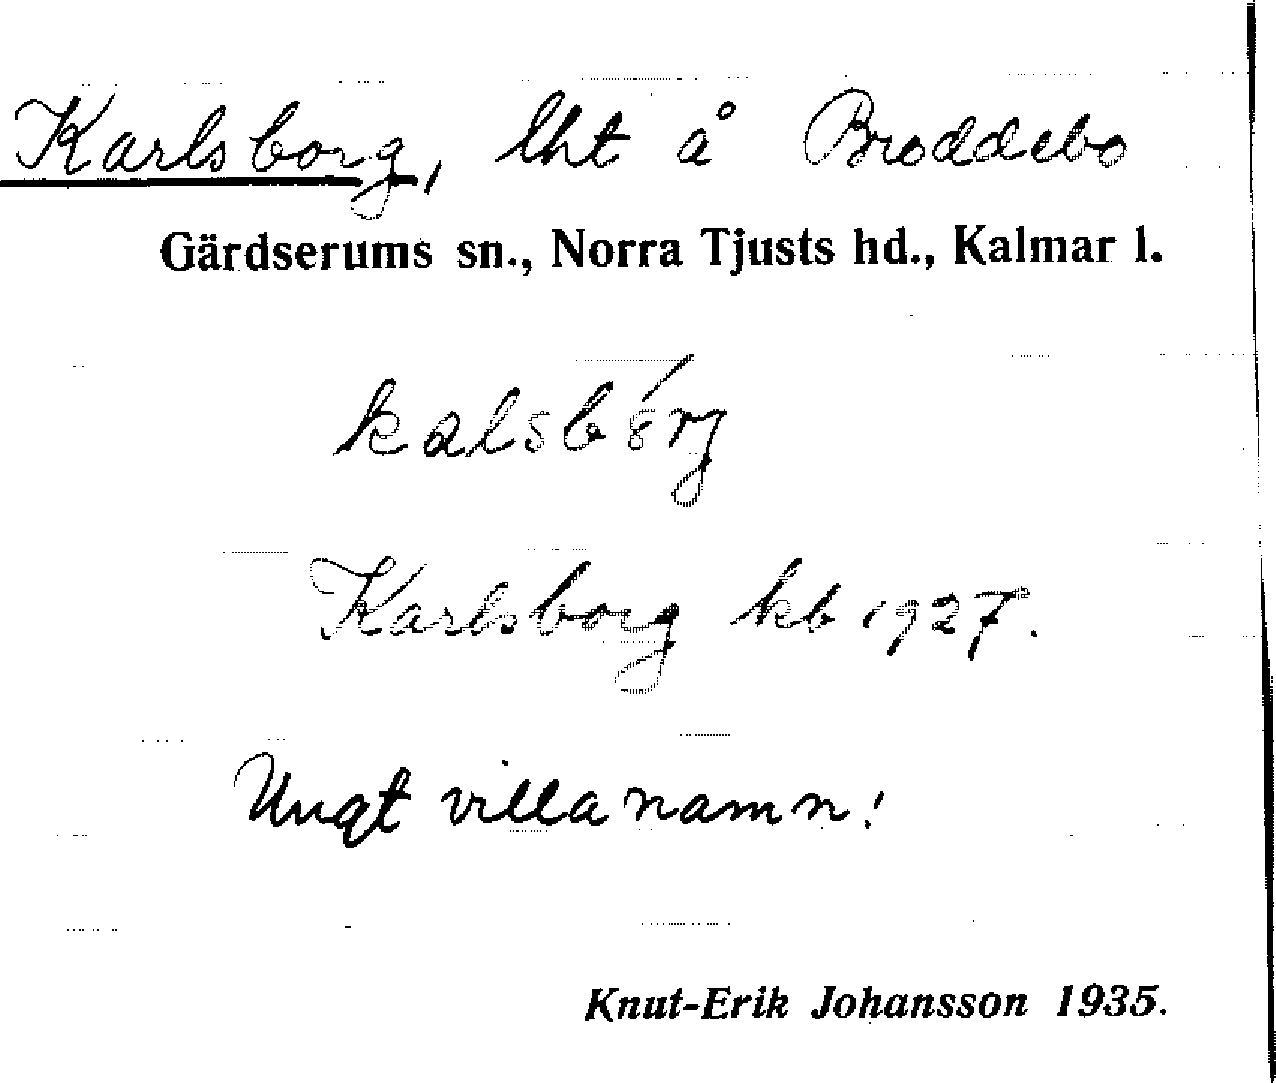 Karlsborg, lht å Broddebo
Gärdserums sn., Norra Tjusts hd., Kalmar l.
Karlsborg kb 1927.
Ungt villanamn!
Knut-Erik Johansson 1935.